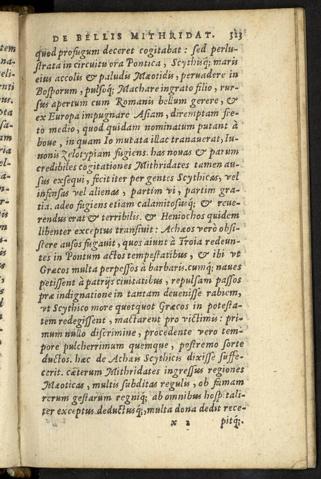 DE BELLIS MITHRIDAT. 323
quod profugum deceret cogitabat: sed perlu-
strata in circuitu ora Pontica, Scythisq; maris
eius accolis & paludis Mæotidis, peruadere in
Bosporum, pulsoq; Machare ingrato filio, rur-
sus apertum cum Romanis bellum gerere, &
ex Europa impugnare Asiam, diremptam fre-
to medio, quod quidam nominatum putant à
boue, in quam Io mutata illac tranauerat, Iu-
nonis Zelotypiam fugiens. has nouas & parum
credibiles cogitationes Mithridates tamen au-
sus exsequi, fecit iter per gentes Scythicas, vel
infensas vel alienas, partim vi, partim gra-
tia. adeo fugiens etiam calamitosusq; & reue-
rendus erat & terribilis. & Heniochos quidem
libenter exceptus transiuit: Achæos verò obsi-
stere ausos fugauit, quos aiunt à Troia redeun-
tes in Pontum actos tempestatibus, & ibi vt
Græcos multa perpessos à barbaris. cumq; naues
petissent à patrijs ciuitatibus, repulsam passos
præ indignatione in tantam deuenisse rabiem,
vt Scythico more quotquot Græcos in potesta-
tem redegissent, mactarent pro victimis: pri-
mum nullo discrimine, procedente vero tem-
pore pulcherrimum quemque, postremo sorte
ductos. hæc de Achæis Scythicis dixisse suffe-
cerit. cæterum Mithridates ingressus regiones
Mæoticas, multis subditas regulis, ob famam
rerum gestarum regniq; ab omnibus hospitali-
ter exceptus deductusq;, multa dona dedit rece-
x 2 pitq;.